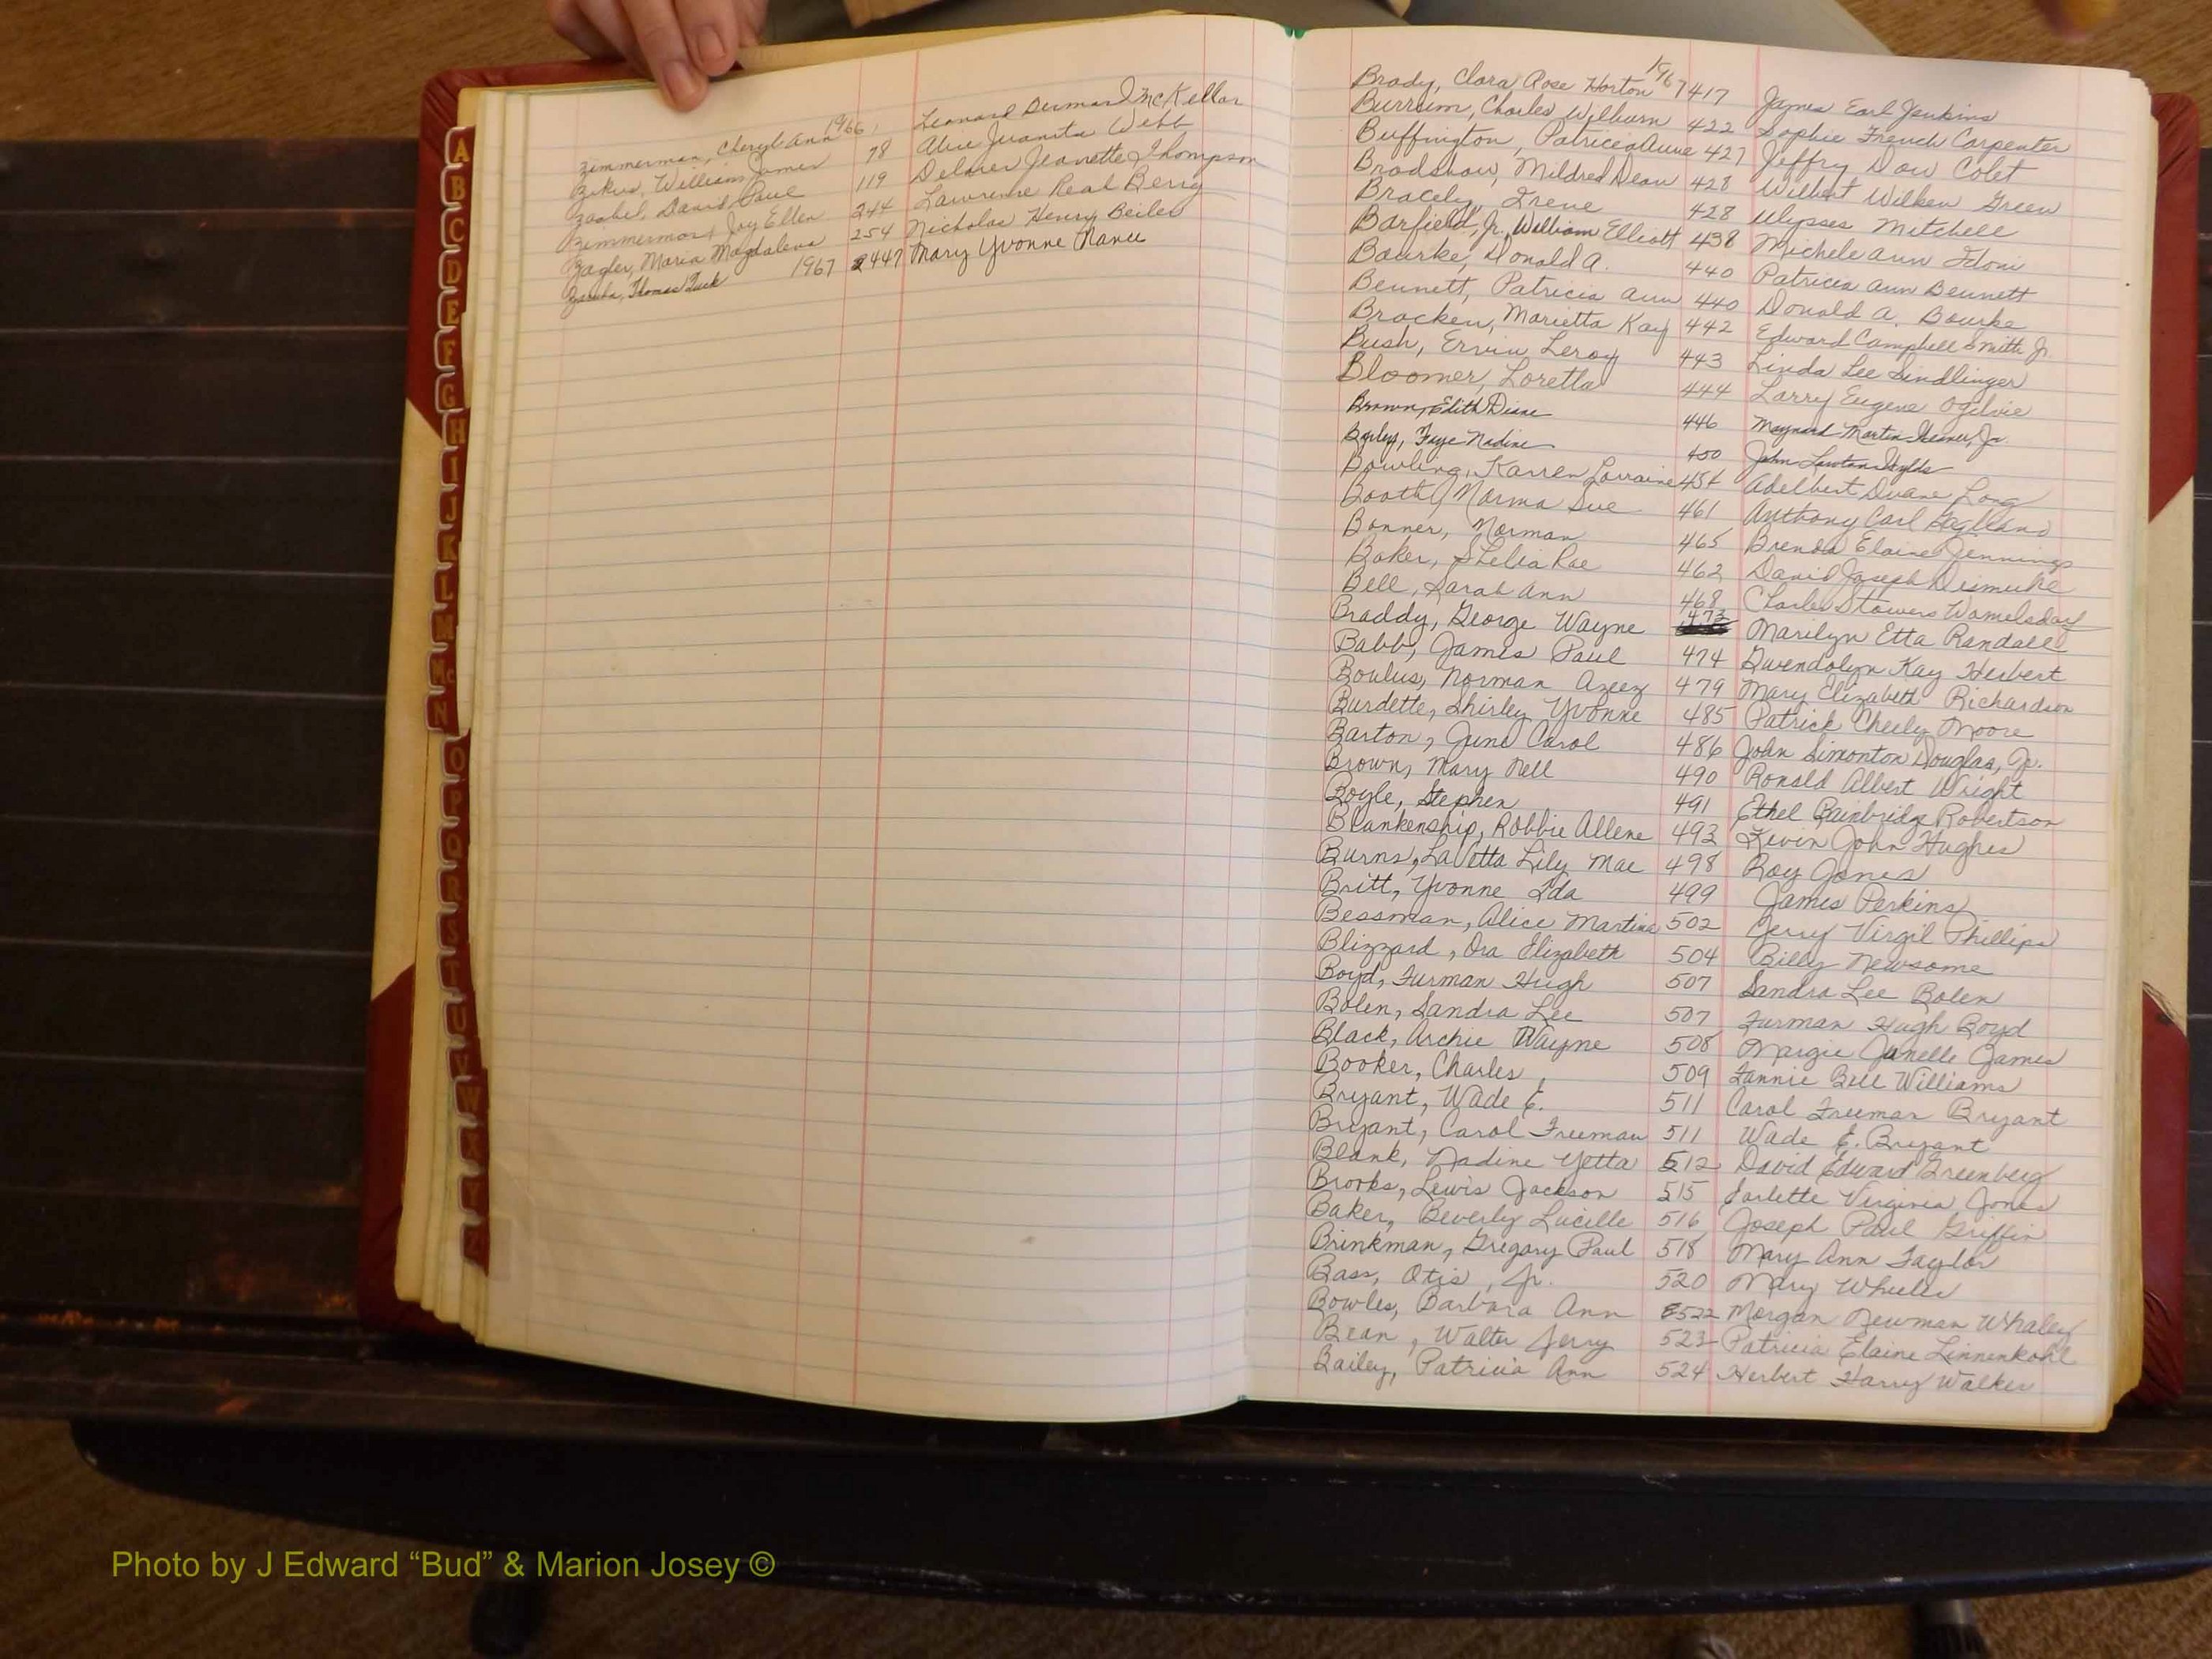 1966
Zimmerman, Cheryl Ann Leonard McKellar
William James 78 Alice Juanita Webb
David Paul 119 Jeanette Thompson
Zimmerman, Joy Ellen 244 Lawrence Real Berry
Zagler, Maria Magdalena 254 Nicholas Henry Beiler
Thomas 1967 2447 Mary Yvonne Nance
A
B
C
D
E
F
G
H
I
J
K
L
M
Mc
N
O
P
Q
R
S
T
U
V
W
X
Y
Z
1967
Brady, Clara Rose Horton 417 James Earl Jenkins
Burrum, Charles Wilburn 422 Sophie French Carpenter
Buffington, Patricia Anne 427 Jeffry Dow Colet
Bradshaw, Mildred Dean 428 Wilbert Wilken Green
Bracely, Irene 428 Ulysses Mitchell
Barfield, Jr. William Elliott 438 Michele Ann
Bourke, Donald A. 440 Patricia Ann Bennett
Bennett, Patricia Ann 440 Donald A. Bourke
Bracken, Marietta Kay 442 Edward Campbell Smith Jr
Bush, Ervin Leroy 443 Linda Lee Sindlinger
Bloomer, Loretta 444 Larry Eugene Ogilvie
Brown, Edith Diane 446 Maynard Martin Jr.
Faye Nadine 450 John Lawton
Bowling, Karren Lorraine 454 Adelbert Duane Long
Booth, Norma Sue 461 Anthony Carl
Bonner, Norman 465 Brenda Elaine Jennings
Baker, Shelia Rae 462 David Joseph Dismuke
Bell, Sarah Ann 468 Charles Stowers Womelsdorf
Braddy, George Wayne 473 Marilyn Etta Randall
Babb, James Paul 474 Gwendolyn Kay Herbert
Boulus, Norman Azeez 479 Mary Elizabeth Richardson
Burdette, Shirley Yvonne 485 Patrick Cheely Moore
Barton, June Carol 486 John Simonton Douglas, Jr.
Brown, Mary Nell 490 Ronald Albert Wright
Boyle, Stephen 491 Ethel Bainbridge Robertson
Blankenship, Robbie Allene 493 Kevin John Hughes
Burns, LaVetta Lily Mae 498 Roy Jones
Britt, Yvonne Ida 499 James Perkins
Bessman, Alice Martina 502 Jerry Virgil Phillips
Blizzard, Ora Elizabeth 504 Billy Newsome
Boyd, Furman Hugh 507 Sandra Lee Bolen
Bolen, Sandra Lee 507 Furman Hugh Boyd
Black, Archie Wayne 508 Margie Janelle James
Booker, Charles 509 Fannie Bell Williams
Bryant, Wade E. 511 Carol Freeman Bryant
Bryant, Carol Freeman 511 Wade E. Bryant
Blank, Nadine Yetta 512 David Edward Greenberg
Brooks, Lewis Jackson 515 Virginia Jones
Baker, Beverly Lucille 516 Joseph Paul Griffin
Brinkman, Gregory Paul 518 Mary Ann Taylor
Bass, Otis, Jr. 520 Mary Wheeler
Bowles, Barbara Ann 522 Morgan Newman Whaley
Bean, Walter Jerry 523 Patricia Elaine Linnenkohl
Bailey, Patricia Ann 524 Herbert Harry Walker
Photo by J Edward “Bud” & Marion Josey ©